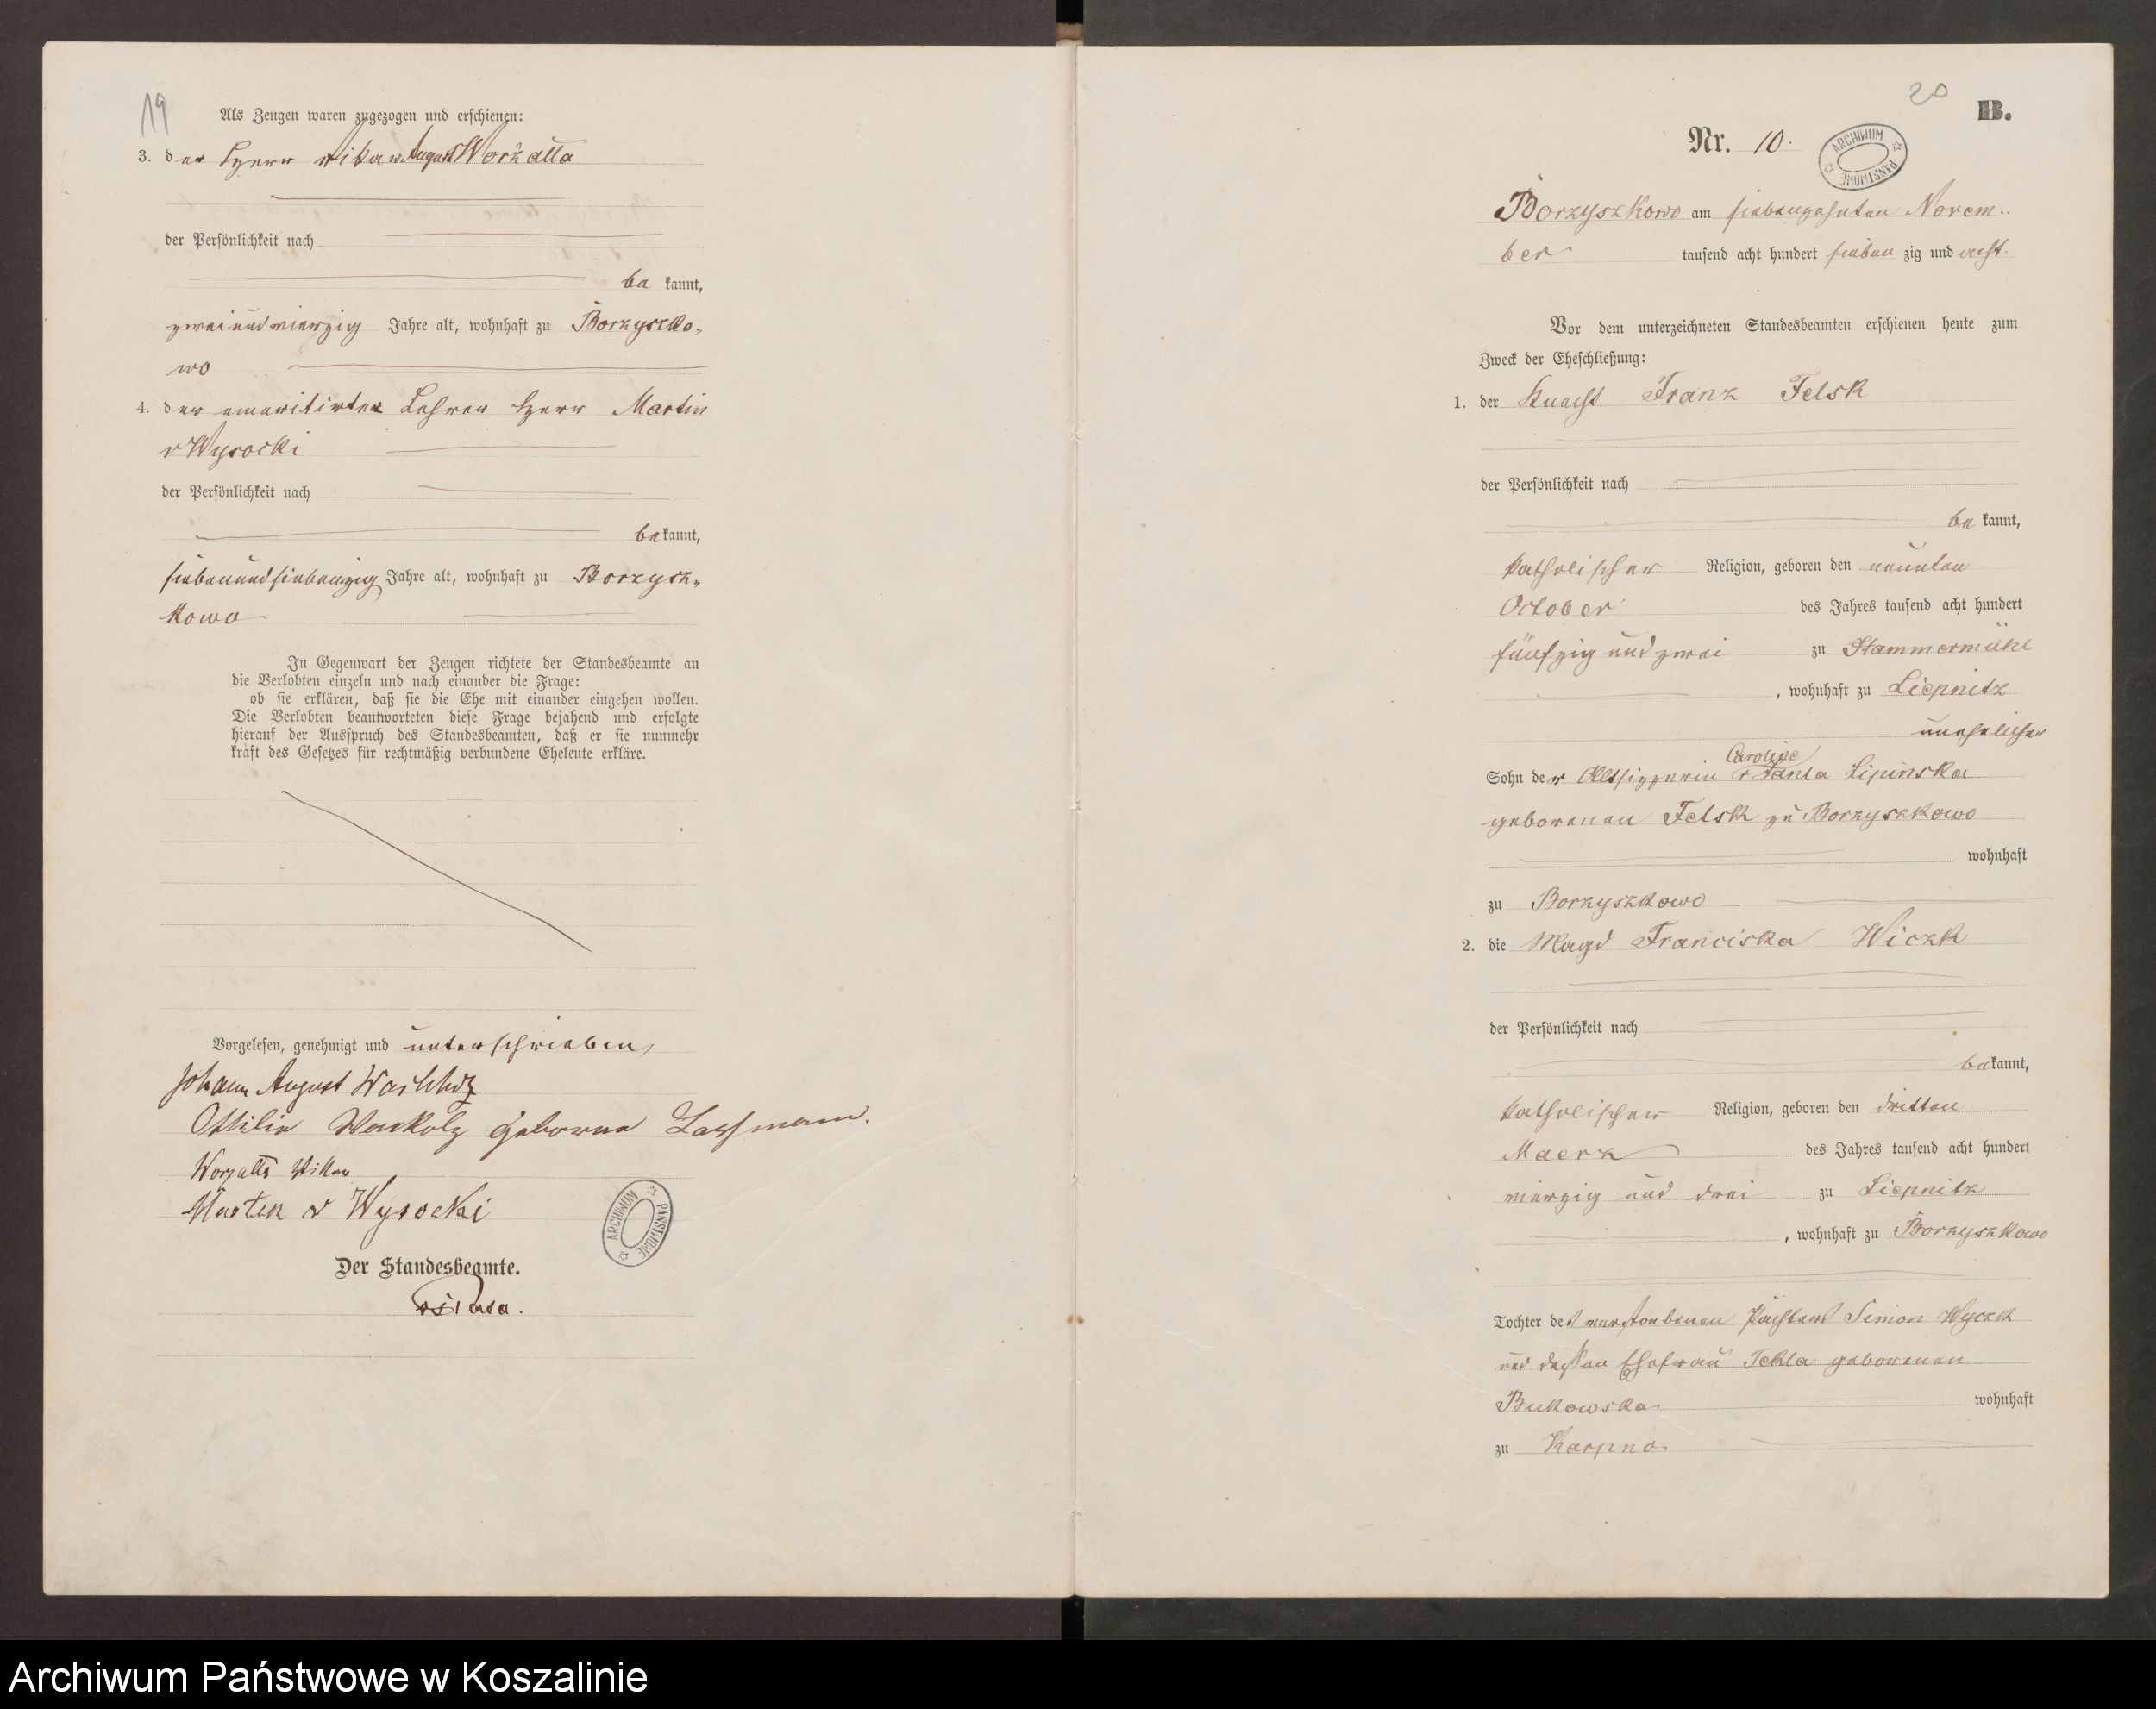 19
Als Zeugen waren zugezogen und erschienen:
3. der Herr Vikar August Worzalla
der Persönlichkeit nach
be kannt,
zweiundvierzig Jahre alt, wohnhaft zu Borzyszko-
wo
4. der emeritirter Lehrer Herr Martin
v Wysocki
der Persönlichkeit nach
bekannt,
siebenundsiebenzig Jahre alt, wohnhaft zu Borzysz-
kowo
In Gegenwart der Zeugen richtete der Standesbeamte an
die Verlobten einzeln und nach einander die Frage:
ob sie erklären, daß sie die Ehe mit einander eingehen wollen.
Die Verlobten beantworteten diese Frage bejahend und erfolgte
hierauf der Ausspruch des Standesbeamten, daß er sie nunmehr
kraft des Gesetzes für rechtmäßig verbundene Eheleute erkläre.
Vorgelesen, genehmigt und unterschrieben
Johann August Wachholz
Ottilie Wackolz geborne Lassmann.
Worzalla Vikar
Marten v Wysocki
ARCHIWUM PAŃSTWOWE
Der Standesbeamte.
20
B.
Nr. 10.
ARCHIWUM PAŃSTWOWE
Borzyszkowo am siebenzehnten Novem-
ber tausend acht hundert sieben zig und acht.
Vor dem unterzeichneten Standesbeamten erschienen heute zum
Zweck der Eheschließung:
1. der Knecht Franz Felsk
der Persönlichkeit nach
be kannt,
katholischer Religion, geboren den neunten
October des Jahres tausend acht hundert
fünfzig und zwei zu Stammermühl
, wohnhaft zu Liepnitz
unehelicher
Caroline
Sohn der Altsitzerin v Janta Lipinska
geborenen Felsk zu Borzyszkowo
wohnhaft
zu Borzyszkowo
2. die Magd Franciska Wiczk
der Persönlichkeit nach
bekannt,
katholischer Religion, geboren den dritten
Maerz des Jahres tausend acht hundert
vierzig und drei zu Liepnitz
, wohnhaft zu Borzyszkowo
Tochter des verstorbenen Pächters Simon Wyczk
und dessen Ehefrau Tekla geborenen
Bukowska wohnhaft
zu Karpno
Archiwum Państwowe w Koszalinie